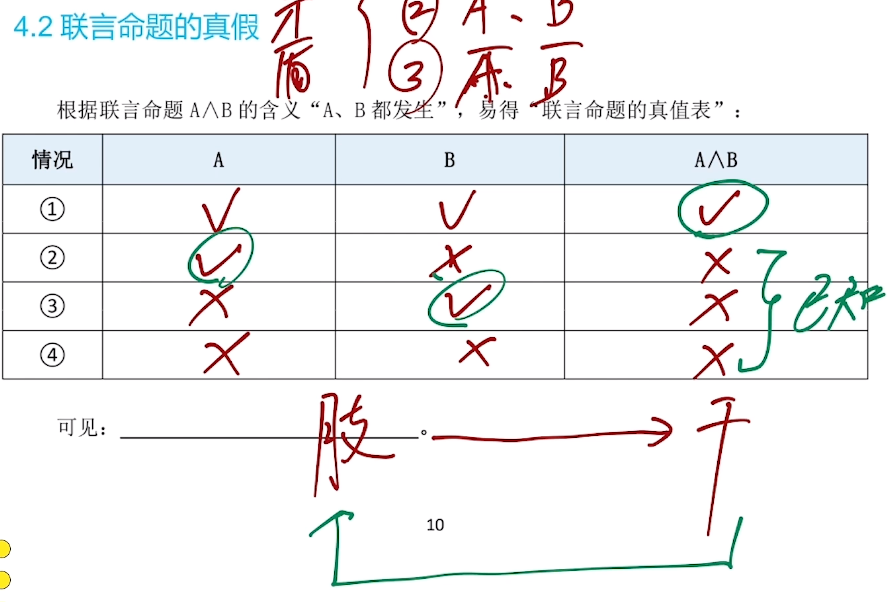 4.2 联言命题的真假
矛盾
② A、B
③ A、B
根据联言命题 A∧B 的含义“A、B 都发生”，易得“联言命题的真值表”：
情况 A B A∧B
① ✓ ✓ ✓
② ✓ × ×
③ × ✓ ×
④ × × ×
已知
可见：____________________。
肢 → 干
10